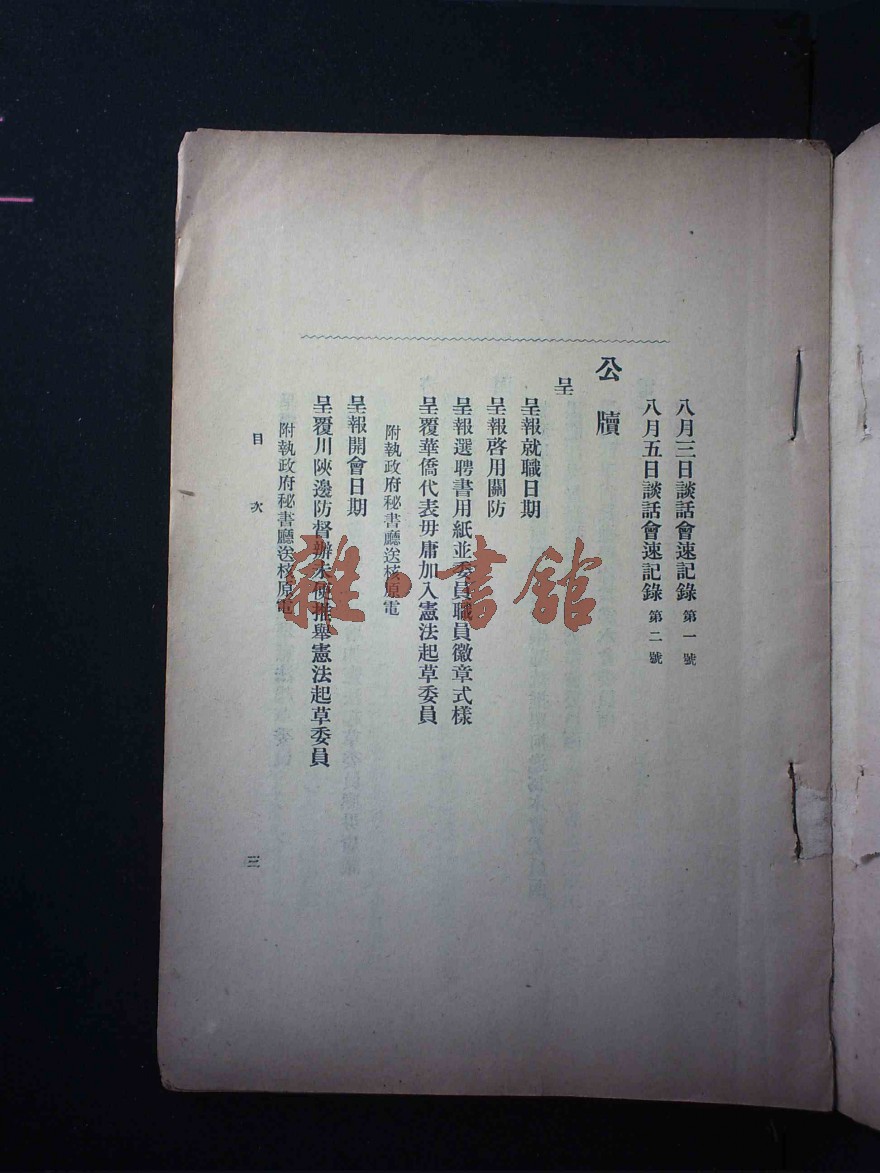 八月三日談話會速記錄 第一號
八月五日談話會速記錄 第二號
公牘
呈
呈報就職日期
呈報啓用關防
呈報選聘書用紙並委員職員徽章式樣
呈覆華僑代表毋庸加入憲法起草委員
附執政府秘書廳送核原電
呈報開會日期
呈覆川陝邊防督辦未便推舉憲法起草委員
附執政府秘書廳送核原電
目次
三
雜·書館